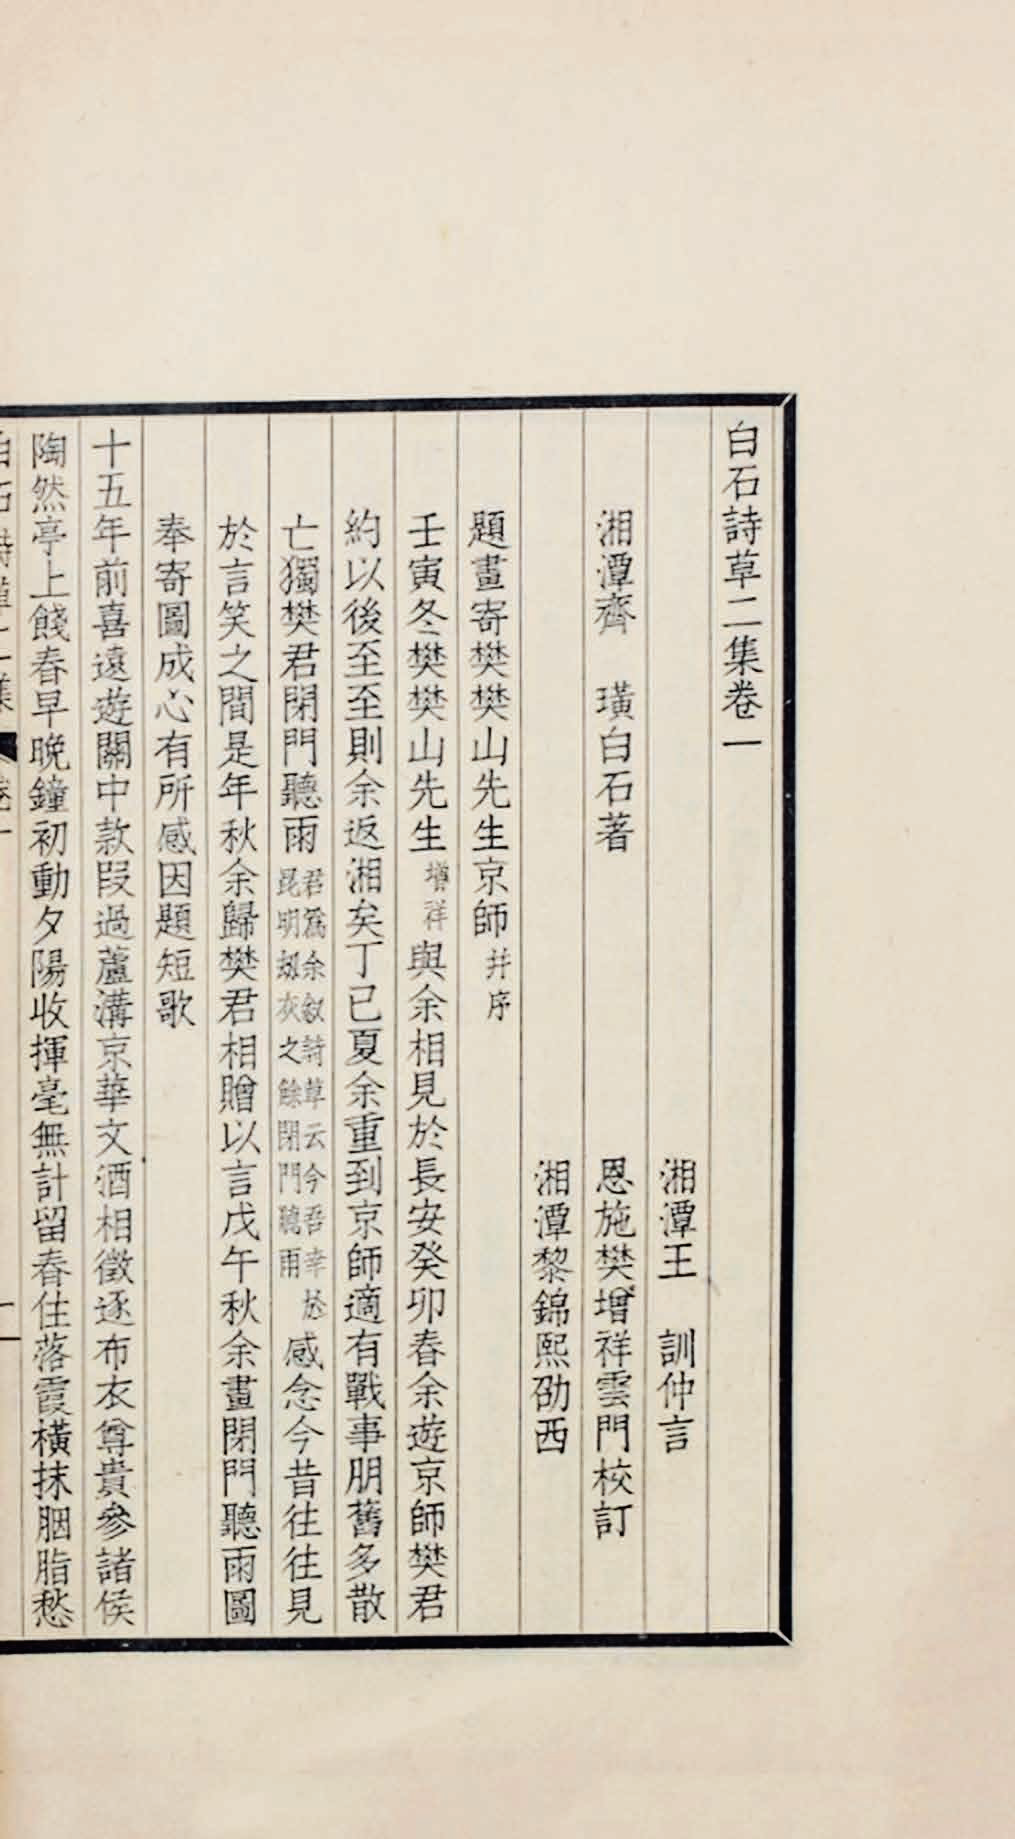 白石詩草二集卷一
湘潭王 訓仲言
湘潭齊 璜白石著 恩施樊增祥雲門校訂
湘潭黎錦熙劭西
題畫寄樊樊山先生京師并序
壬寅冬樊樊山先生增祥與余相見於長安癸卯春余遊京師樊君
約以後至至則余返湘矣丁巳夏余重到京師適有戰事朋舊多散
亡獨樊君閉門聽雨君爲余叙詩草云今吾幸於昆明劫灰之餘閉門聽雨感念今昔往往見
於言笑之間是年秋余歸樊君相贈以言戊午秋余畫閉門聽雨圖
奉寄圖成心有所感因題短歌
十五年前喜遠遊關中款段過蘆溝京華文酒相徵逐布衣尊貴參諸侯
陶然亭上餞春早晚鐘初動夕陽收揮毫無計留春住落霞橫抹胭脂愁